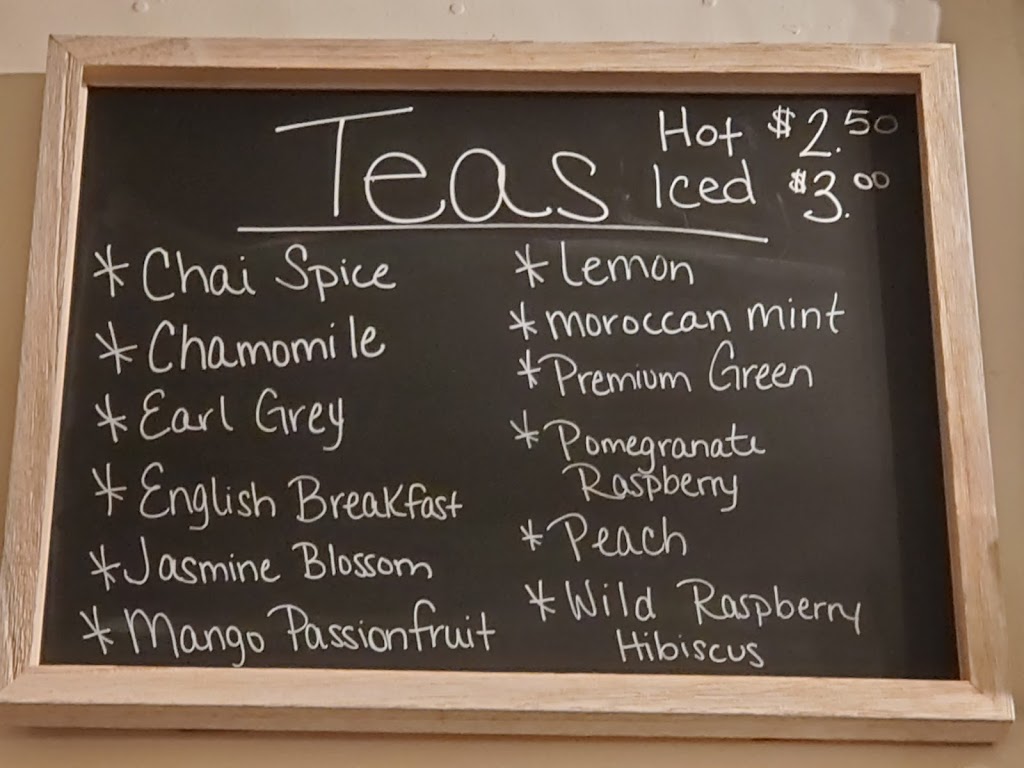 Teas
Hot $2.50
Iced $3.00
* Chai Spice
* Chamomile
* Earl Grey
* English Breakfast
* Jasmine Blossom
* Mango Passionfruit
* Lemon
* moroccan mint
* Premium Green
* Pomegranate
Raspberry
* Peach
* Wild Raspberry
Hibiscus